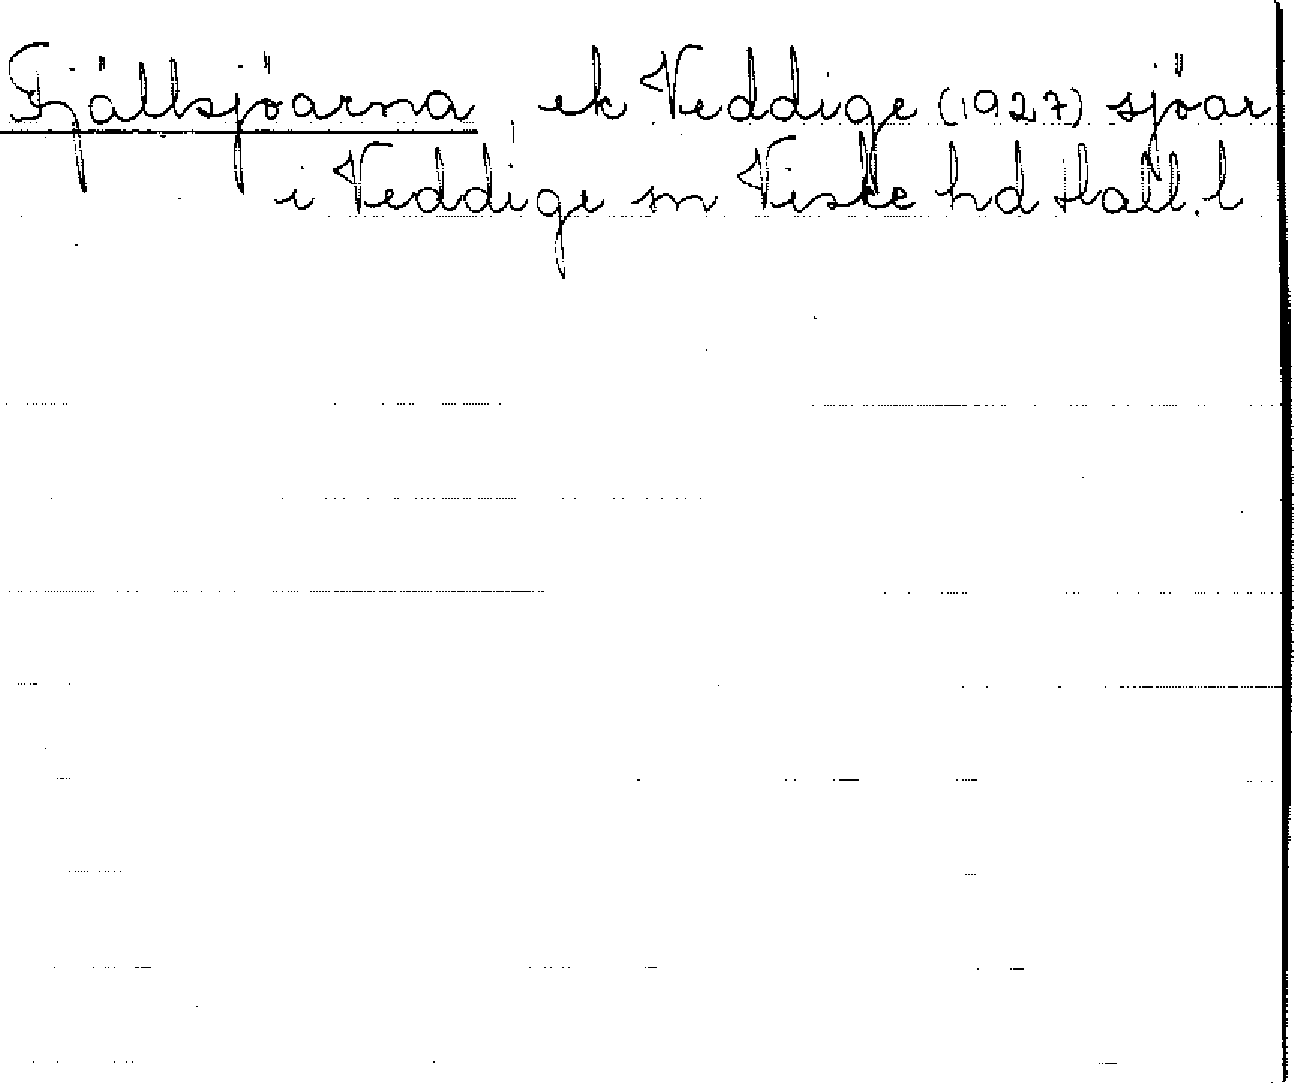 Fjällsjöarna ek Veddige (1927) sjöar
i Veddige sn Viske hd Hall. l